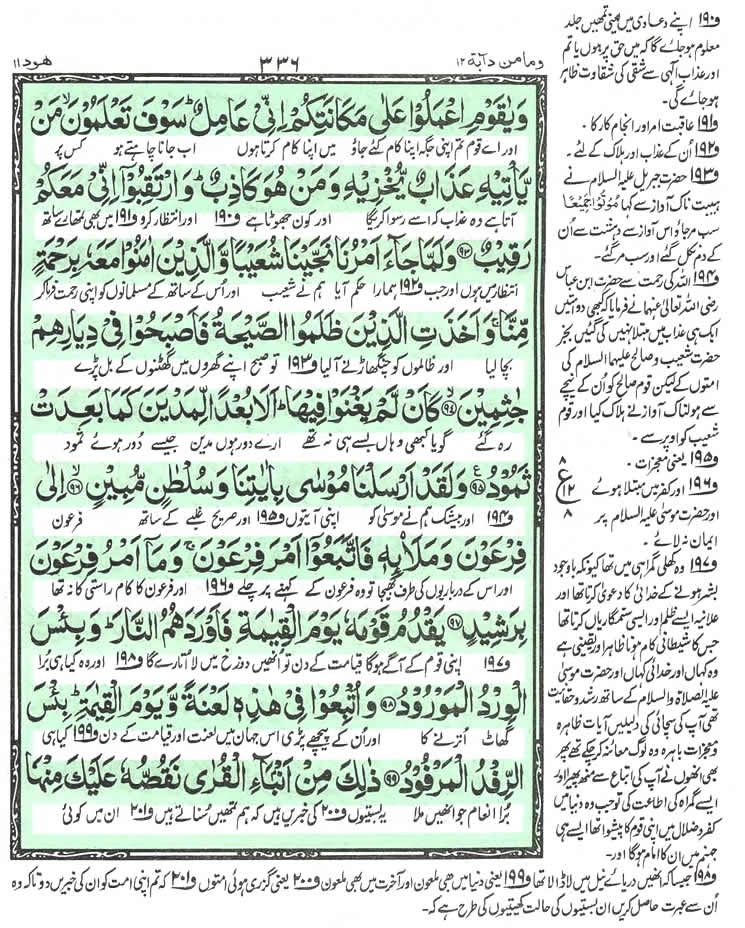 ھود ۱۱
۳۳۶
وما من دآبة ۱۲
وَيٰقَوْمِ اعْمَلُوْا عَلٰى مَكَانَتِكُمْ اِنِّىْ عَامِلٌ سَوْفَ تَعْلَمُوْنَ مَنْ
اور اے قوم تم اپنی جگہ اپنا کام کئے جاؤ میں اپنا کام کرتا ہوں اب جانا چاہتے ہو کس پر
يَّاْتِيْهِ عَذَابٌ يُّخْزِيْهِ وَمَنْ هُوَ كَاذِبٌ وَارْتَقِبُوْٓا اِنِّىْ مَعَكُمْ
آتا ہے وہ عذاب کہ اسے رسوا کریگا اور کون جھوٹا ہے ف۱۹۰ اور انتظار کرو ف۱۹۱ میں بھی تمھارے ساتھ
رَقِيْبٌ ۹۳ وَلَمَّا جَآءَ اَمْرُنَا نَجَّيْنَا شُعَيْبًا وَّالَّذِيْنَ اٰمَنُوْا مَعَهٗ بِرَحْمَةٍ
انتظار میں ہوں اور جب ف۱۹۲ ہمارا حکم آیا ہم نے شعیب اور اُس کے ساتھ کے مسلمانوں کو اپنی رحمت فرما کر
مِّنَّا وَاَخَذَتِ الَّذِيْنَ ظَلَمُوا الصَّيْحَةُ فَاَصْبَحُوْا فِىْ دِيَارِهِمْ
بچا لیا اور ظالموں کو چنگھاڑ نے آ لیا ف۱۹۳ تو صبح اپنے گھروں میں گھٹنوں کے بل پڑے
جٰثِمِيْنَ ۹۴ كَاَنْ لَّمْ يَغْنَوْا فِيْهَا اَلَا بُعْدًا لِّمَدْيَنَ كَمَا بَعِدَتْ
رہ گئے گویا کبھی وہاں بسے ہی نہ تھے ارے دور ہوں مدین جیسے دُور ہوئے ثمود
ثَمُوْدُ ۹۵ وَلَقَدْ اَرْسَلْنَا مُوْسٰى بِاٰيٰتِنَا وَسُلْطٰنٍ مُّبِيْنٍ ۹۶ اِلٰى
ف۱۹۴ اور بیشک ہم نے موسیٰ کو اپنی آیتوں ف۱۹۵ اور صریح غلبے کے ساتھ فرعون
فِرْعَوْنَ وَمَلَا۟ئِهٖ فَاتَّبَعُوْٓا اَمْرَ فِرْعَوْنَ وَمَآ اَمْرُ فِرْعَوْنَ
اور اس کے درباریوں کی طرف بھیجا تو وہ فرعون کے کہنے پر چلے ف۱۹۶ اور فرعون کا کام راستی کا نہ تھا
بِرَشِيْدٍ ۹۷ يَقْدُمُ قَوْمَهٗ يَوْمَ الْقِيٰمَةِ فَاَوْرَدَهُمُ النَّارَ وَبِئْسَ
ف۱۹۷ اپنی قوم کے آگے ہوگا قیامت کے دن تو اُنھیں دوزخ میں لا اُتارے گا ف۱۹۸ اور وہ کیا ہی بُرا
الْوِرْدُ الْمَوْرُوْدُ ۹۸ وَاُتْبِعُوْا فِىْ هٰذِهٖ لَعْنَةً وَّيَوْمَ الْقِيٰمَةِ بِئْسَ
گھاٹ اُترنے کا اور اُن کے پیچھے پڑی اس جہان میں لعنت اور قیامت کے دن ف۱۹۹ کیا ہی
الرِّفْدُ الْمَرْفُوْدُ ۹۹ ذٰلِكَ مِنْ اَنْۢبَآءِ الْقُرٰى نَقُصُّهٗ عَلَيْكَ مِنْهَا
بُرا انعام جو انھیں ملا یہ بستیوں ف۲۰۰ کی خبریں ہیں کہ ہم تمھیں سُناتے ہیں ف۲۰۱ ان میں کوئی
ف۱۹۰ اپنے دعاوی میں یعنی تمھیں جلد
معلوم ہو جائے گا کہ میں حق پر ہوں یا تم
اور عذاب الٰہی سے شقی کی شقاوت ظاہر
ہو جائے گی۔
ف۱۹۱ عاقبت امر اور انجام کار کا۔
ف۱۹۲ اُن کے عذاب اور ہلاک کے لئے۔
ف۱۹۳ حضرت جبریل علیہ السلام نے
ہیبت ناک آواز سے کہا مُوْتُوْا جَمِیْعًا
سب مر جاؤ اس آواز سے دہشت سے اُن
کے دم نکل گئے اور سب مر گئے۔
ف۱۹۴ اللّٰہ کی رحمت سے حضرت ابن عباس
رضی اللّٰہ تعالیٰ عنہما نے فرمایا کہ کبھی دو امتیں
ایک ہی عذاب میں مبتلا نہیں کی گئیں بجز
حضرت شعیب و صالح علیہما السلام کی
امتوں کے لیکن قوم صالح کو اُن کے نیچے
سے ہولناک آواز نے ہلاک کیا اور قوم
شعیب کو اوپر سے۔
ف۱۹۵ یعنی معجزات۔
ف۱۹۶ اور کفر میں مبتلا ہوئے
اور حضرت موسیٰ علیہ السلام پر
ایمان نہ لائے۔
۸
ع
۱۲
۸
ف۱۹۷ وہ کھلی گمراہی میں تھا کیونکہ باوجود
بشر ہونے کے خدائی کا دعویٰ کرتا تھا اور
علانیہ ایسے ظلم اور ایسی ستمگاریاں کرتا تھا
جس کا شیطانی کام ہونا ظاہر اور یقینی ہے
وہ کہاں اور خدائی کہاں اور حضرت موسیٰ
علیہ الصلاۃ والسلام کے ساتھ رشد و حقانیت
تھی آپ کی سچائی کی دلیلیں آیات ظاہرہ
و معجزات باہرہ وہ لوگ معائنہ کر چکے تھے پھر
بھی انھوں نے آپ کی اتباع سے منھ پھیرا اور
ایسے گمراہ کی اطاعت کی تو جب وہ دنیا میں
کفر و ضلال میں اپنی قوم کا پیشوا تھا ایسے ہی
جہنم میں ان کا امام ہوگا اور۔
ف۱۹۸ جیسا کہ انھیں دریائے نیل میں لا ڈالا تھا ف۱۹۹ یعنی دنیا میں بھی ملعون اور آخرت میں بھی ملعون ف۲۰۰ یعنی گزری ہوئی امتوں ف۲۰۱ کہ تم اپنی امت کو ان کی خبریں دو تاکہ وہ
اُن سے عبرت حاصل کریں ان بستیوں کی حالت کھیتیوں کی طرح ہے کہ۔